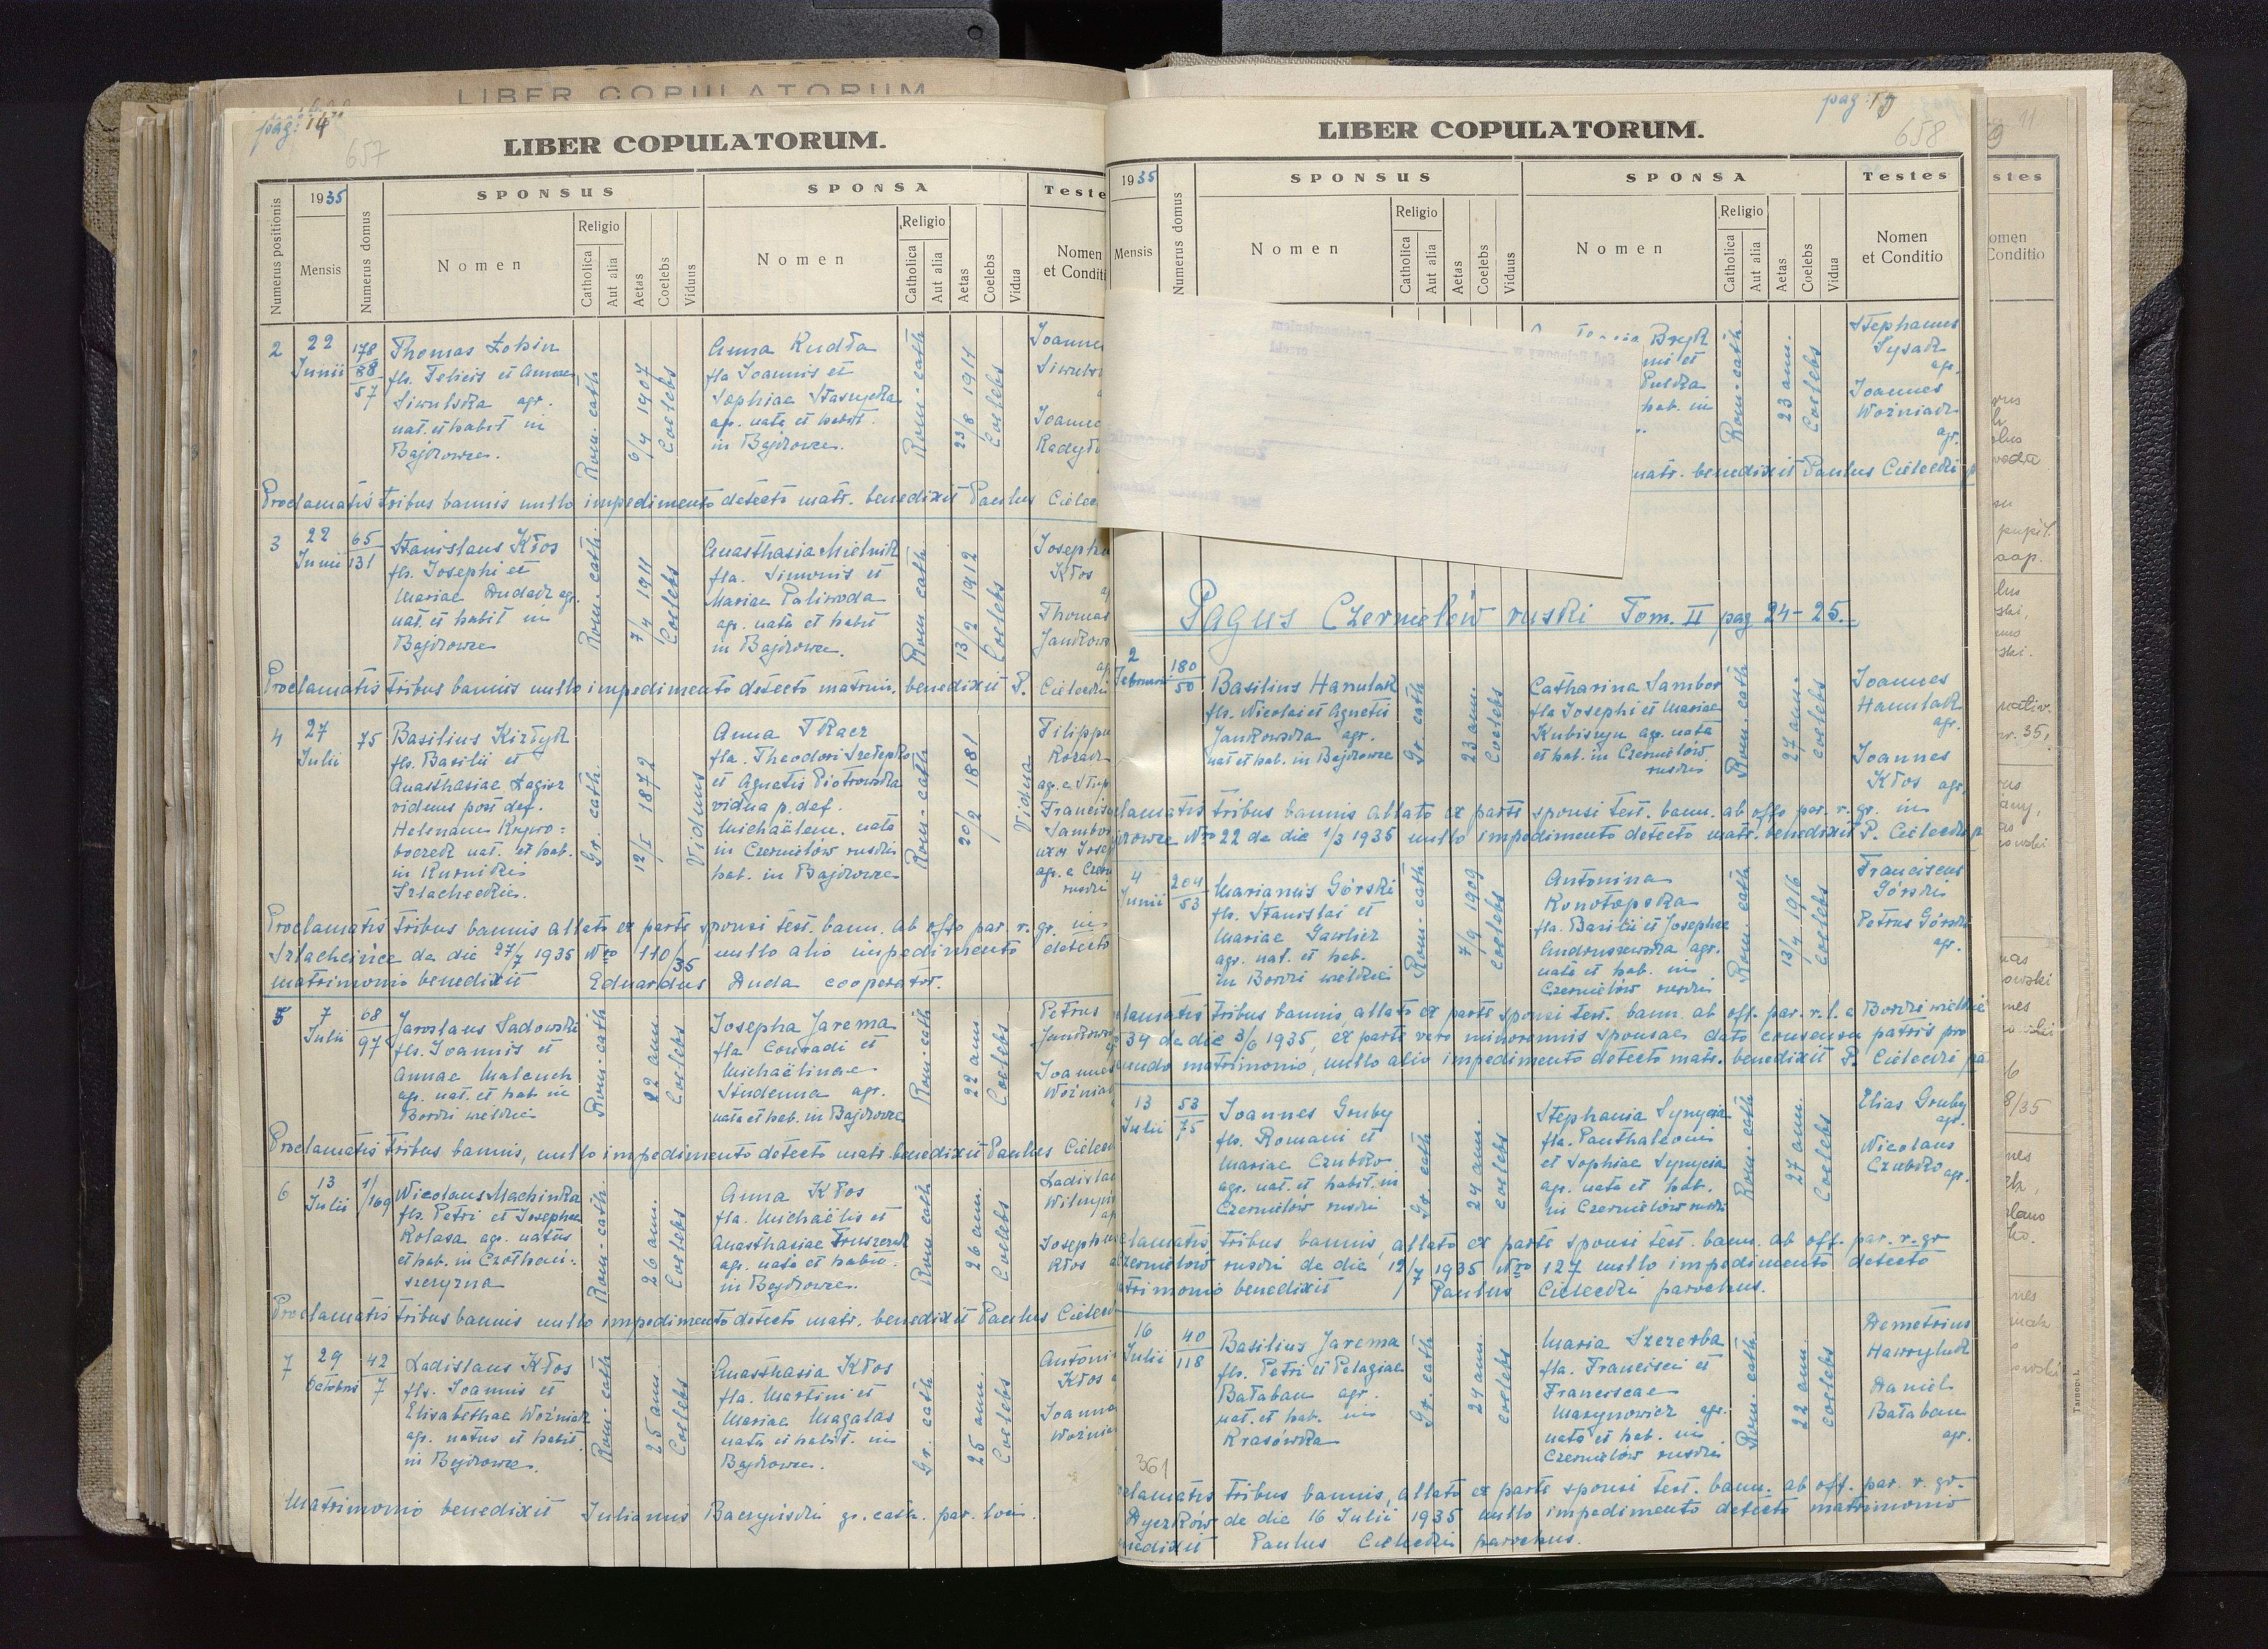 LIBER COPULATORUM
pag: 14
657
LIBER COPULATORUM.
Numerus positionis
1935
Mensis
Numerus domus
SPONSUS
Nomen
Religio
Catholica
Aut alia
Aetas
Coelebs
Viduus
SPONSA
Nomen
Religio
Catholica
Aut alia
Aetas
Coelebs
Vidua
Teste
Nomen
et Conditi
2
22
Junii
178
88
57
Thomas Łobin
fls. Felicis et Annae
Siwulska agr.
nat. et habit in
Bajkowce.
Rom. cath
6/4 1907
Coelebs
Anna Kudła
fla Joannis et
Sophiae Stasyszka
agr. nata et habit.
in Bajkowce.
Rom-cath
23/8 1911
Coelebs
Joanne
Siwuls
Joanne
Radył
Proclamatis tribus bannis nullo impedimento detecto matr. benedixit Paulus Ciélec
3
22
Junii
65
131
Stanislaus Kłos
fls. Josephi et
Mariae Dudek agr.
nat. et habit in
Bajkowce
Rom. cath.
7/4 1911
Coelebs
Anasthasia Mielnik
fla. Simonis et
Mariae Paliwoda
agr. nata et habit
in Bajkowce.
Rom cath
13/2 1912
Coelebs
Josephu
Kłos
Thomas
Jankow
Proclamatis tribus bannis nullo impedimento detecto matrim. benedixit P. Ciélecki
4
27
Julii
75
Basilius Kiżłyk
fls. Basilii et
Anasthasiae Łagisz
viduus post def.
Helenam Krywo=
boczek nat. et hab.
in Kurniki
Szlacheckie.
Gr. cath.
12/5 1872
Viduus
Anna Tkacz
fla. Theodori Szełepko
et Agnetis Piotrowska
vidua p. def.
Michaëlem. nata
in Czernielów ruski
hab. in Bajkowce
Rom-cath
20/2 1881
Vidua
Filippu
Kozak
Francis
Sambor
uxor Jose
agr. e Czern
ruski
Proclamatis tribus bannis allato ex parte sponsi test. bann. ab offo par. r. gr. in
Szlachcińce de die 27/7 1935 Nro 110/35 nullo alio impedimento detecto
matrimonio benedixit Eduardus Duda cooperator.
5
7
Julii
68
97
Jaroslaus Sadowski
fls. Joannis et
Annae Malench
agr. nat. et hab in
Borki wielkie
Rom-cath
22 ann.
Coelebs
Josepha Jarema
fla Conradi et
Michaëlinae
Studenna agr.
nata et hab. in Bajkowce
Rom-cath
22 ann
Coelebs
Petrus
Jankows
Joannes
Woźniak
Proclamatis tribus bannis, nullo impedimento detecto matr. benedixit Paulus Ciélec
6
13
Julii
1/169
Nicolaus Machinka
fls. Petri et Josephae
Kolasa agr. natus
et hab. in Czołhań-
szczyzna
Rom-cath.
26 ann.
Coelebs
Anna Kłos
fla. Michaëlis et
Anasthasiae Truszczak
agr. nata et habit.
in Bajkowce.
Rom cath
26 ann.
Coelebs
Ladislau
Josephus
Kłos
Proclamatis tribus bannis nullo impedimento detecto matr. benedixit Paulus Ciéleck
7
29
Octobris
42
7
Ladislaus Kłos
fls. Joannis et
Elisabethae Woźniak
agr. natus et habit.
in Bajkowce.
Rom-cath
25 ann.
Coelebs
Anasthasia Kłos
fla. Martini et
Mariae Magalas
nata et habit. in
Bajkowce.
Gr. cath
25 ann.
Coelebs
Antoni
Kłos
Joanne
Woźnia
Matrimonio benedixit Julianus Baczyński gr. cath. par. loci.
pag: 15
658
LIBER COPULATORUM.
1935
Mensis
Numerus domus
SPONSUS
Nomen
Religio
Catholica
Aut alia
Aetas
Coelebs
Viduus
SPONSA
Nomen
Religio
Catholica
Aut alia
Aetas
Coelebs
Vidua
Testes
Nomen
et Conditio
Bryk
mi et
Puszka
hab. in
Rom-cath.
23 ann.
Coelebs
Stephanus
Sysak
agr.
Joannes
Woźniak
agr.
matr. benedixit Paulus Ciélecki p
Pagus Czernielów ruski Tom. II pag 24-25.
2
Februarii
180
50
Basilius Hanulak
fls. Nicolai et Agnetis
Jankowska agr.
nat et hab. in Bajkowce
Gr. cath
23 ann.
Coelebs
Catharina Sambor
fla Josephi et Mariae
Kubiszyn agr. nata
et hab. in Czernielów
ruski
Rom-cath
27 ann.
coelebs
Joannes
Hanulak
agr.
Joannes
Kłos agr.
clamatis tribus bannis allato ex parte sponsi test. bann. ab offo par. r. gr. in
jkowce Nro 22 de die 1/3 1935 nullo impedimento detecto matr. benedixit P. Ciélecki p
4
Junii
204
53
Marianus Górski
fls. Stanislai et
Mariae Gawlicz
agr. nat. et hab.
in Borki wielkie
Rom-cath
7/9 1909
Coelebs
Antonina
Konotopska
fla. Basilii et Josephae
Andruszewska agr.
nata et hab. in
Czernielów ruski
Rom-cath
13/4 1916
Coelebs
Franciscus
Górski
Petrus Górski
agr.
clamatis tribus bannis allato ex parte sponsi test. bann. ab off. par. r. l. e Borki wielkie
34 de die 3/6 1935, ex parte vero minorennis sponsae dato consensu patris pro
eundo matrimonio, nullo alio impedimento detecto matr. benedixit P. Ciélecki pa
13
Julii
53
75
Joannes Gruby
fls. Romani et
Mariae Czubko
agr. nat. et habit. in
Czernielów ruski
Gr. cath
24 ann.
coelebs
Stephania Synycia
fla. Panthaleonis
et Sophiae Synycia
agr. nata et hab.
in Czernielów ruski
Rom-cath
27 ann.
Coelebs
Elias Gruby
agr.
Nicolaus
Czubko agr.
clamatis tribus bannis, allato ex parte sponsi test. bann. ab off. par. r. gr
Czernielów ruski de die 12/7 1935 Nro 127 nullo impedimento detecto
atrimonio benedixit Paulus Ciélecki parochus.
16
Julii
40
118
Basilius Jarema
fls. Petri et Pelagiae
Bałaban agr.
nat. et hab. in
Krasówka
Gr. cath
24 ann.
coelebs
Maria Szczerba
fla. Francisci et
Franciscae
Masynowicz agr.
nata et hab. in
Czernielów ruski
Rom. cath
22 ann.
coelebs
Demetrius
Hawryluk
Daniel
Bałaban
agr.
361
clamatis tribus bannis, allato ex parte sponsi test. bann. ab off. par. r. gr.
Dyczków de die 16 Julii 1935 nullo impedimento detecto matrimonio
nedixit Paulus Ciélecki parochus.
stes
omen
Conditio
Tarnopol.